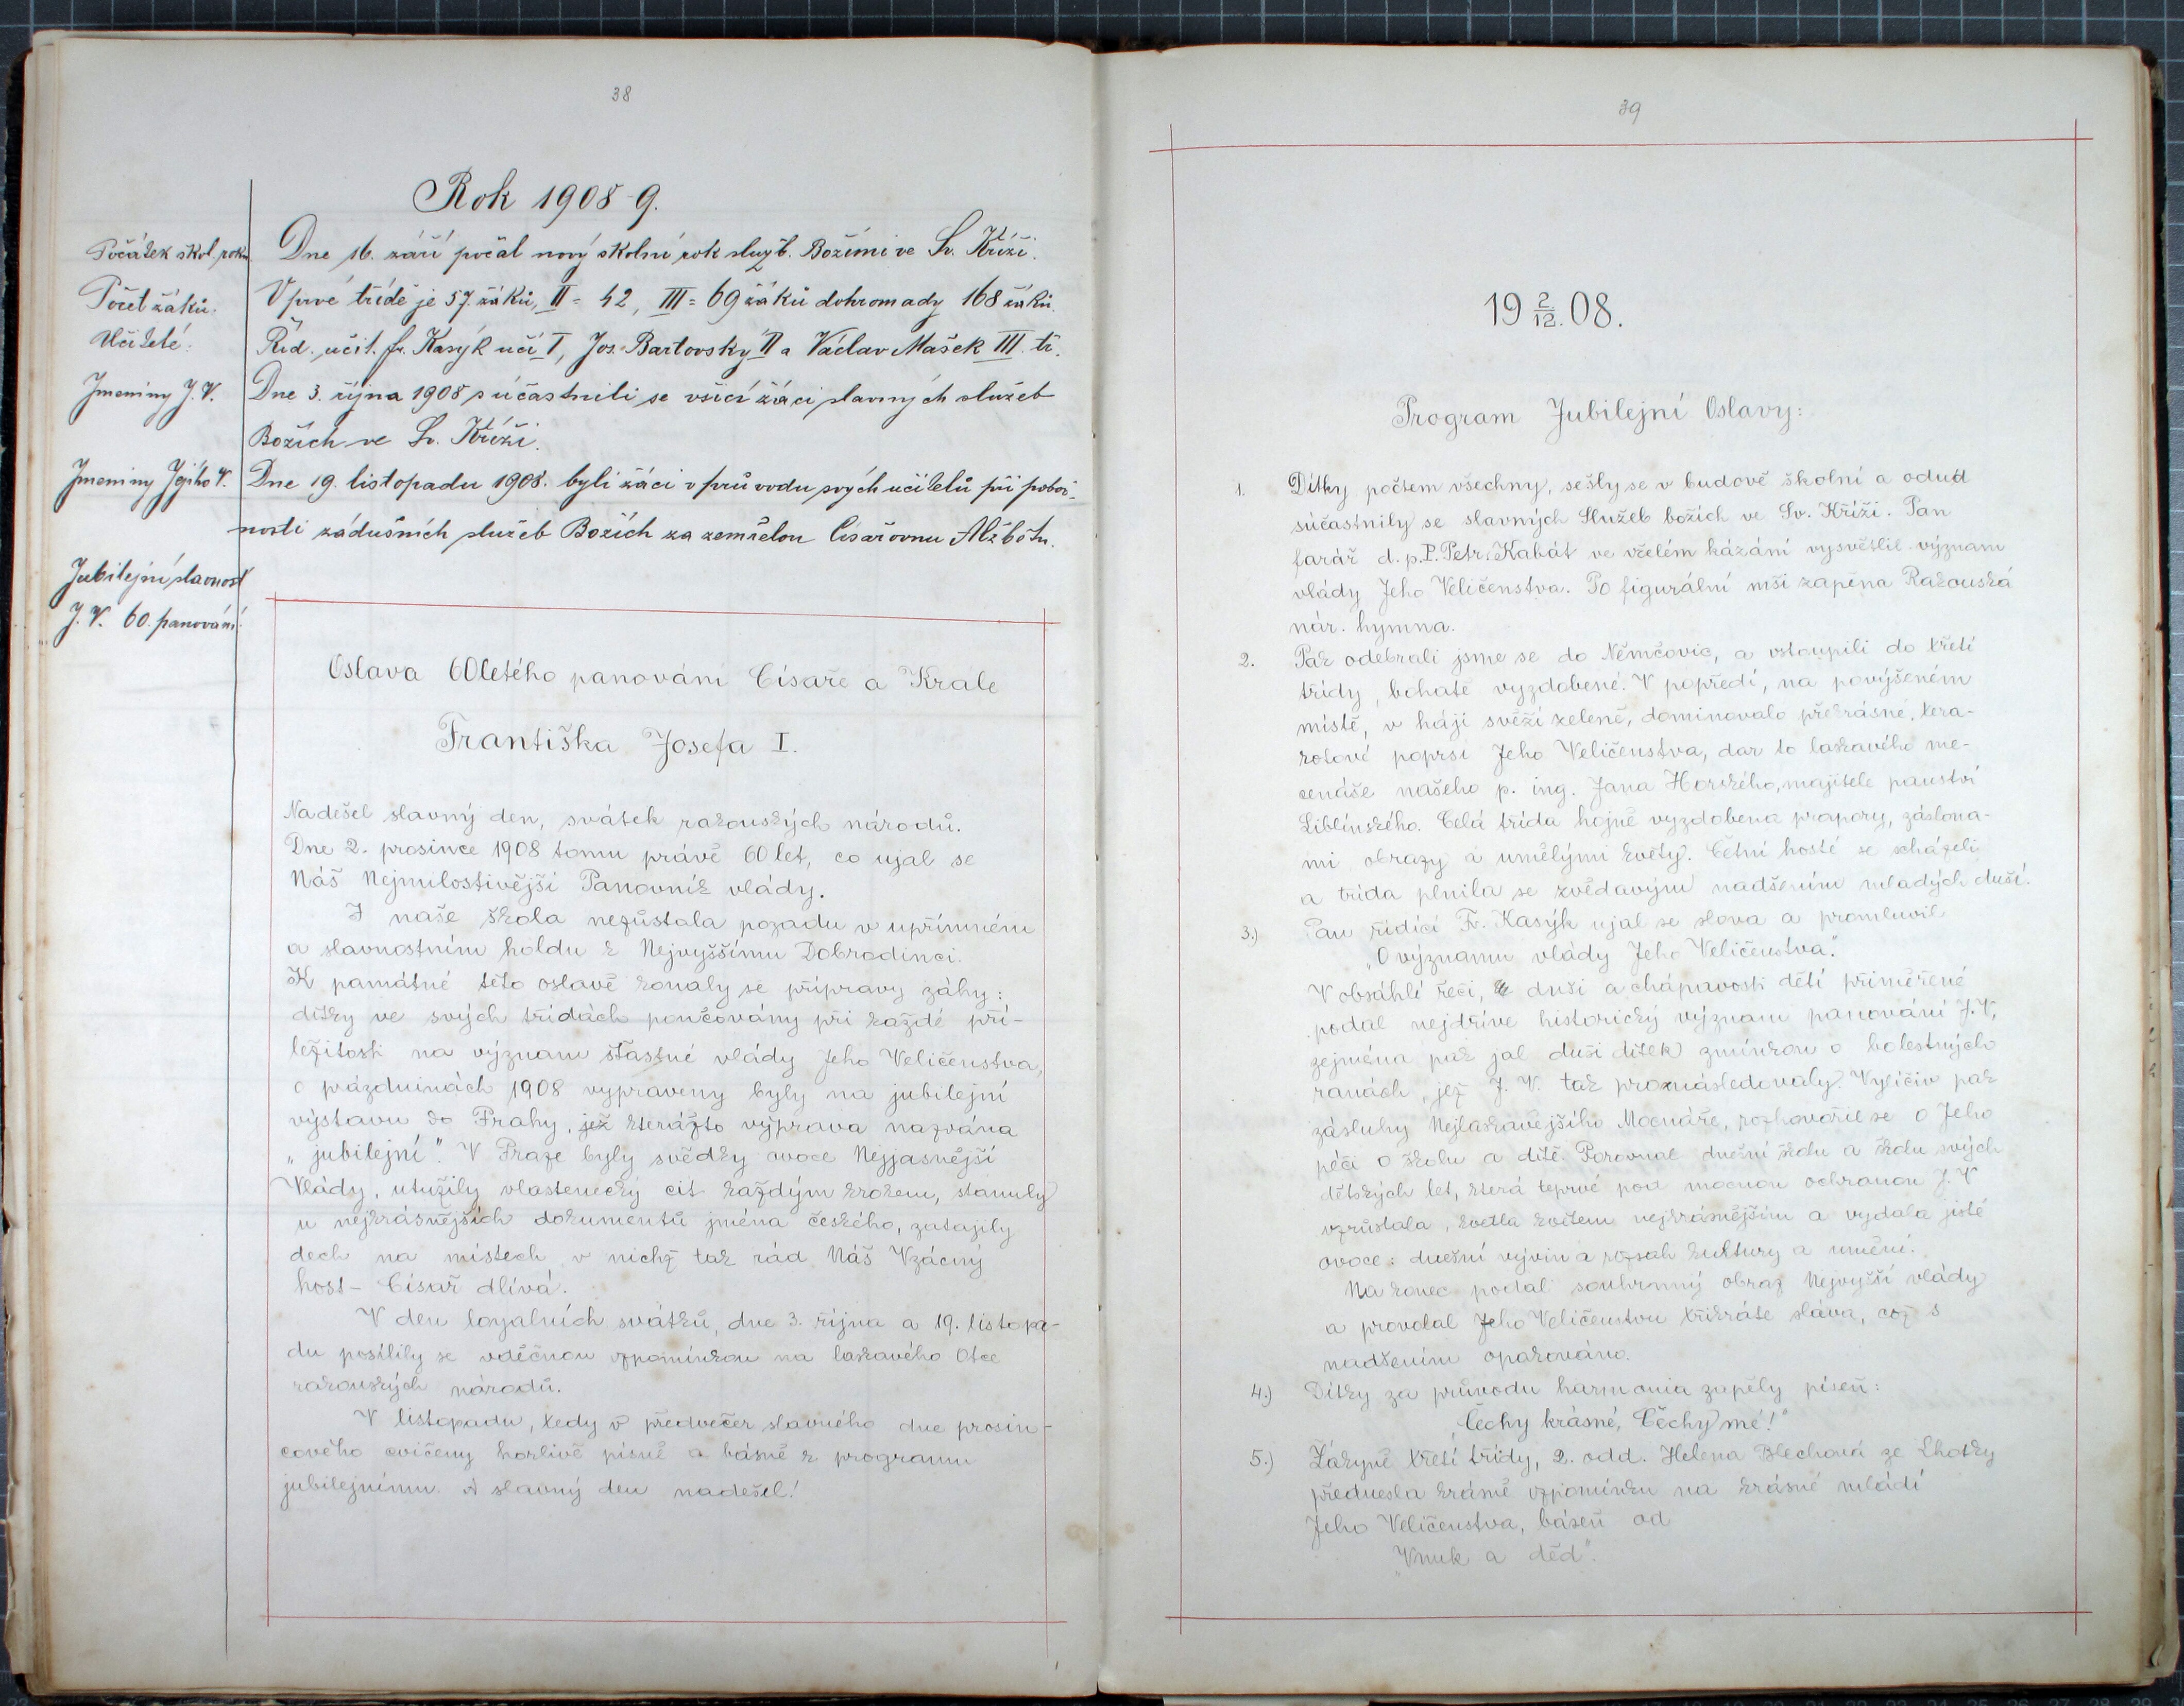 38
Rok 1908-9.
Počátek škol. roku
Dne 16. září počal nový školní rok služb. Božími ve Sv. Kříži.
Počet žáků.
V prvé třídě je 57 žáků, II = 42, III = 69 žáků dohromady 168 žáků.
Učitelé:
Říd. učit. Fr. Kasýk učí I, Jos. Bartovský II a Václav Mašek III. tř.
Jmeniny J. V.
Dne 3. října 1908 súčastnili se všicí žáci slavných služeb
Božích ve Sv. Kříži.
Jmeniny Jejího V.
Dne 19. listopadu 1908. byli žáci v průvodu svých učitelů při pobož-
nosti zádušních služeb Božích za zemřelou Císařovnu Alžbětu.
Jubilejní slavnost
J. V. 60. panování.
Oslava 60letého panování Císaře a Krále
Františka Josefa I.
Nadešel slavný den, svátek rakouských národů.
Dne 2. prosince 1908 tomu právě 60 let, co ujal se
Náš Nejmilostivější Panovník vlády.
I naše škola nezůstala pozadu v upřímném
a slavnostním holdu k Nejvyššímu Dobrodinci.
K památné této oslavě konaly se přípravy záhy:
dítky ve svých třídách poučovány při každé pří-
ležitosti na význam šťastné vlády Jeho Veličenstva,
o prázdninách 1908 vypraveny byly na jubilejní
výstavu do Prahy, jež kterážto výprava nazvána
„jubilejní“. V Praze byly svědky ovoce Nejjasnější
Vlády, utužily vlastenecký cit každým krokem, stanuly
u nejkrásnějších dokumentů jména českého, zatajily
dech na místech v nichž tak rád Náš Vzácný
host - Císař dlívá.
V den loyalních svátků, dne 3. října a 19. listopa-
du posílily se vděčnou vzpomínkou na laskavého Otce
rakouských národů.
V listopadu, tedy v předvečer slavného dne prosin-
cového cvičeny horlivě písně a básně k programu
jubilejnímu. A slavný den nadešel!
39
19 2/12. 08.
Program Jubilejní Oslavy:
1. Dítky počtem všechny, sešly se v budově školní a odtud
súčastnily se slavných Služeb božích ve Sv. Kříži. Pan
farář d. p. P. Petr Kabát ve vřelém kázání vysvětlil význam
vlády Jeho Veličenstva. Po figurální mši zapěna Rakouská
nár. hymna.
2. Pak odebrali jsme se do Němčovic, a vstoupili do třetí
třídy, bohatě vyzdobené. V popředí, na povýšeném
místě, v háji svěží zeleně, dominovalo překrásné, tera-
kotové poprsí Jeho Veličenstva, dar to laskavého me-
cenáše našeho p. ing. Jana Horckého, majitele panství
Liblínského. Celá třída hojně vyzdobena prapory, záslona-
mi obrazy a umělými květy. Četní hosté se scházeli
a třída plnila se zvědavým nadšením mladých duší.
3.) Pan řídící Fr. Kasýk ujal se slova a promluvil
„O významu vlády Jeho Veličenstva“.
V obsáhlé řeči, duši a chápavosti dětí přiměřené
podal nejdříve historický význam panování J. V,
zejména pak jal duši dítek zmínkou o bolestných
ranách, jež J. V. tak pronásledovaly. Vylíčiv pak
zásluhy Nejlaskavějšího Mocnáře, rozhovořil se o Jeho
péči o školu a dítě. Porovnal dnešní školu a školu svých
dětských let, která teprvé pod mocnou ochranou J. V
vzrůstala, kvetla květem nejkrásnějším a vydala jisté
ovoce: dnešní vývin a rozsah kultury a umění.
Na konec podal souhrnný obraz Nejvyšší vlády
a provolal Jeho Veličenstvu třikráte sláva, což s
nadšením opakováno.
4.) Dítky za průvodu harmonia zapěly píseň:
„Čechy krásné, Čechy mé!“
5.) Žákyně třetí třídy, 2. odd. Helena Blechová ze Lhotky
přednesla krásně vzpomínku na krásné mládí
Jeho Veličenstva, báseň od
„Vnuk a děd“.